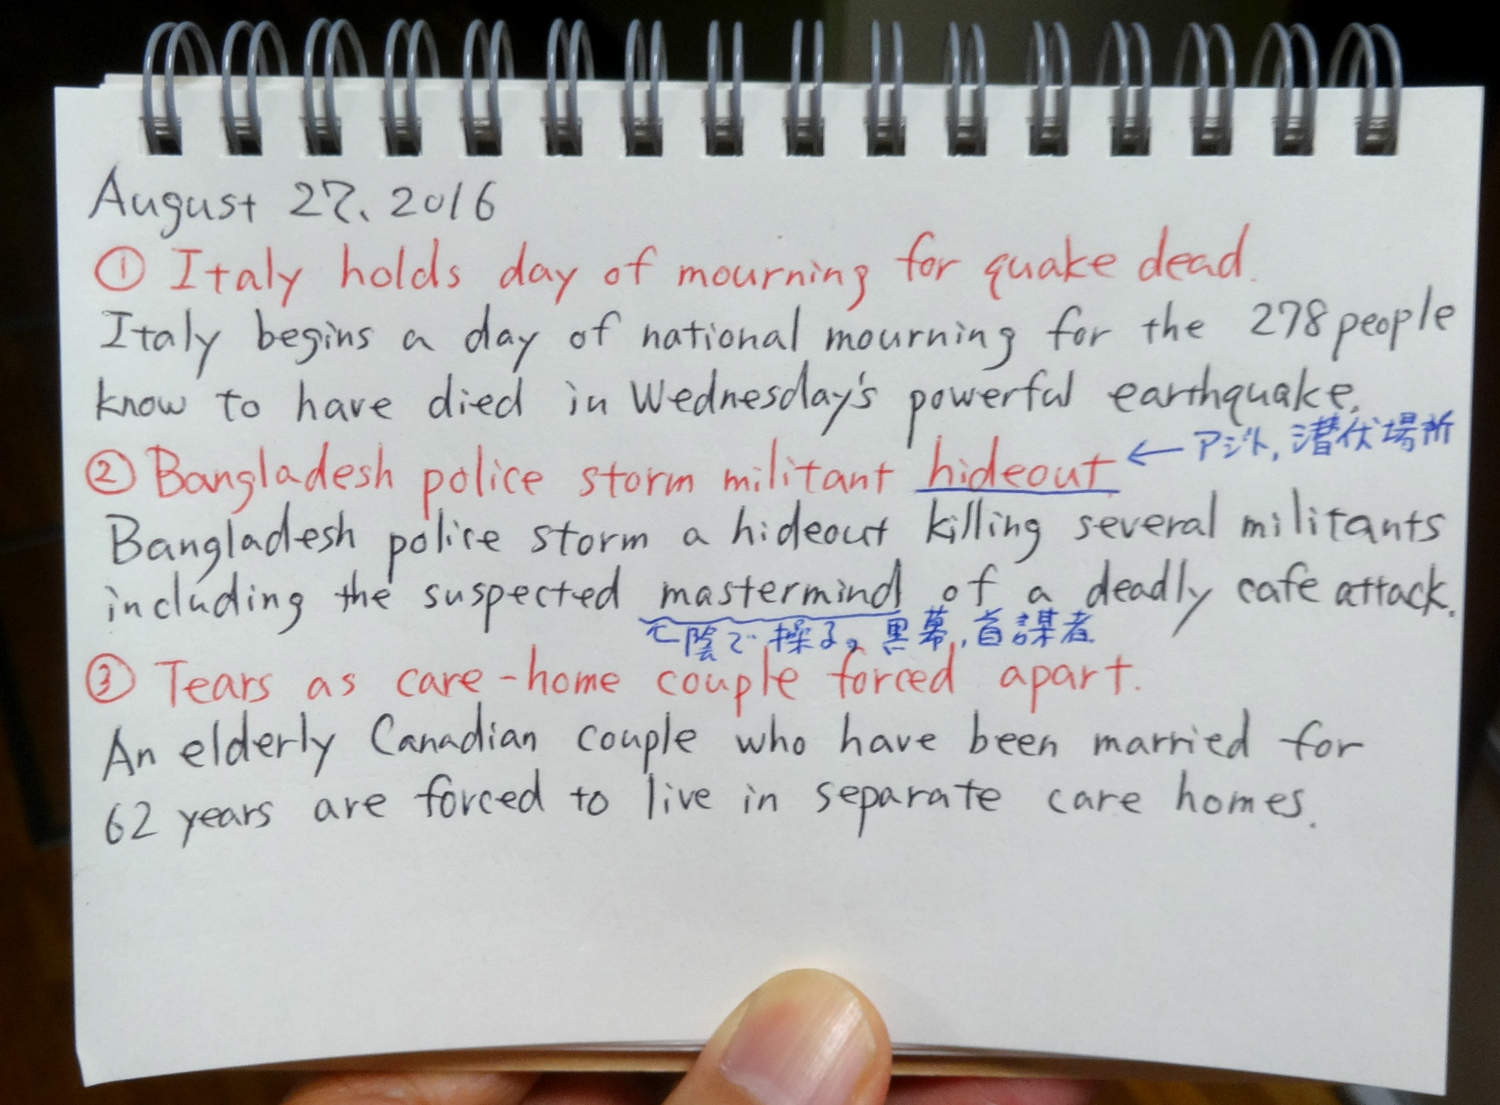 August 27、2016
① Italy holds day of mourning for quake dead.
Italy begins a day of national mourning for the 278 people
know to have died in Wednesday's powerful earthquake.
② Bangladesh police storm militant hideout ← アジト, 潜伏場所
Bangladesh police storm a hideout killing several militants
including the suspected mastermind of a deadly cafe attack.
陰で操る。黒幕, 首謀者
③ Tears as care-home couple forced apart.
An elderly Canadian couple who have been married for
62 years are forced to live in separate care homes.